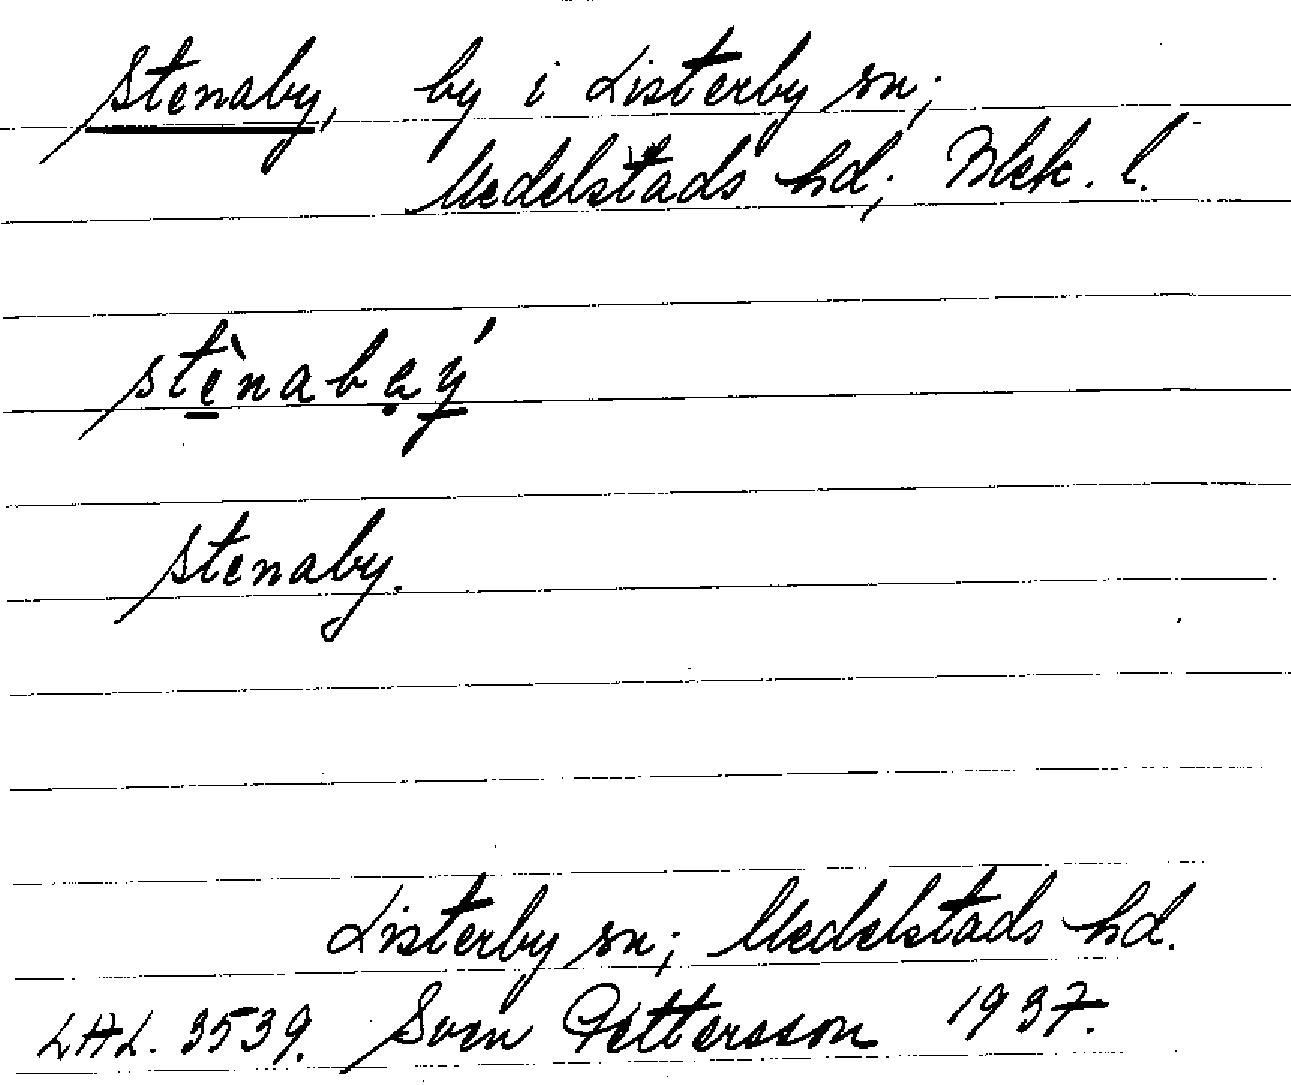 Stenaby, by i Listerby sn;
Medelstads hd; Blek. l.
stènabęý
Stenaby.
Listerby sn; Medelstads hd.
LAL. 3539. Sven Pettersson 1937.